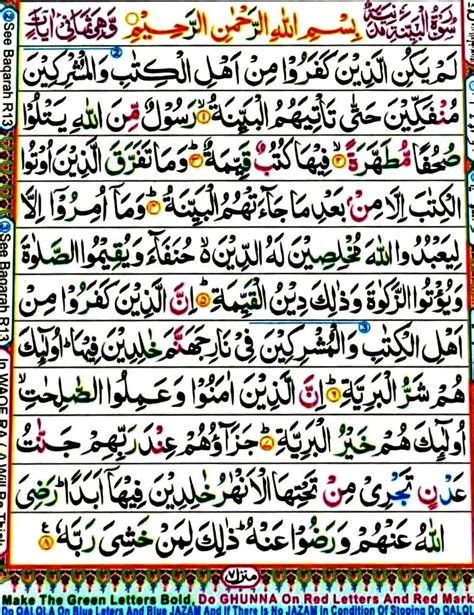 سُوْرَةُ الْبَيِّنَةِ مَدَنِيَّةٌ بِسْمِ اللهِ الرَّحْمٰنِ الرَّحِيْمِ وَهِيَ ثَمَانِيْ اٰيَاتٍ
لَمْ يَكُنِ الَّذِيْنَ كَفَرُوْا مِنْ اَهْلِ الْكِتٰبِ وَالْمُشْرِكِيْنَ
مُنْفَكِّيْنَ حَتّٰى تَاْتِيَهُمُ الْبَيِّنَةُ ۙ﴿۱﴾ رَسُوْلٌ مِّنَ اللهِ يَتْلُوْا
صُحُفًا مُّطَهَّرَةً ۙ﴿۲﴾ فِيْهَا كُتُبٌ قَيِّمَةٌ ؕ﴿۳﴾ وَمَا تَفَرَّقَ الَّذِيْنَ اُوْتُوا
الْكِتٰبَ اِلَّا مِنْۢ بَعْدِ مَا جَآءَتْهُمُ الْبَيِّنَةُ ؕ﴿۴﴾ وَمَاۤ اُمِرُوْۤا اِلَّا
لِيَعْبُدُوا اللهَ مُخْلِصِيْنَ لَهُ الدِّيْنَ ۙ۬ حُنَفَآءَ وَيُقِيْمُوا الصَّلٰوةَ
وَيُؤْتُوا الزَّكٰوةَ وَذٰلِكَ دِيْنُ الْقَيِّمَةِ ؕ﴿۵﴾ اِنَّ الَّذِيْنَ كَفَرُوْا مِنْ
اَهْلِ الْكِتٰبِ وَالْمُشْرِكِيْنَ فِيْ نَارِ جَهَنَّمَ خٰلِدِيْنَ فِيْهَا ؕ اُولٰٓئِكَ
هُمْ شَرُّ الْبَرِيَّةِ ؕ﴿۶﴾ اِنَّ الَّذِيْنَ اٰمَنُوْا وَعَمِلُوا الصّٰلِحٰتِ ۙ
اُولٰٓئِكَ هُمْ خَيْرُ الْبَرِيَّةِ ؕ﴿۷﴾ جَزَآؤُهُمْ عِنْدَ رَبِّهِمْ جَنّٰتُ
عَدْنٍ تَجْرِيْ مِنْ تَحْتِهَا الْاَنْهٰرُ خٰلِدِيْنَ فِيْهَاۤ اَبَدًا ؕ رَضِيَ
اللهُ عَنْهُمْ وَرَضُوْا عَنْهُ ؕ ذٰلِكَ لِمَنْ خَشِيَ رَبَّهٗ ﴿۸﴾
منزل ۷
Make The Green Letters Bold, Do GHUNNA On Red Letters And Red Mark
Do QALQLA On Blue Leters And Blue JAZAM And If There Is No JAZAM In Condition Of Stopping Do Qal
See Baqarah R13
See Baqarah R13